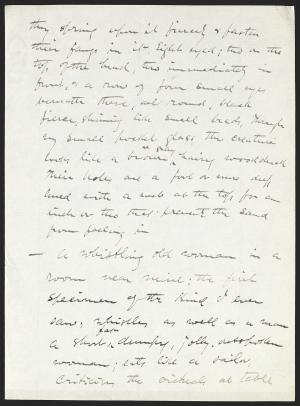 they spring upon it fiercely & fasten
their fangs in it - eight eyed; two on the
top of the head, two immediately in
front, & a row of four small eyes
beneath these, all round, black
fierce, shining like small beads, through
my small pocket glass the creature
looks like a brown, hairy woodchuck
Their holes are a foot or more deep
lined with a web at the top, for an
inch or two to prevent the sand
from falling in
— A whistling old woman in a
room near mine; the first
specimen of the kind I ever
saw; whistles as well as a man
a short, fat, dumpy, jolly, outspoken
woman; eats like a sailor,
criticises the victuals at table